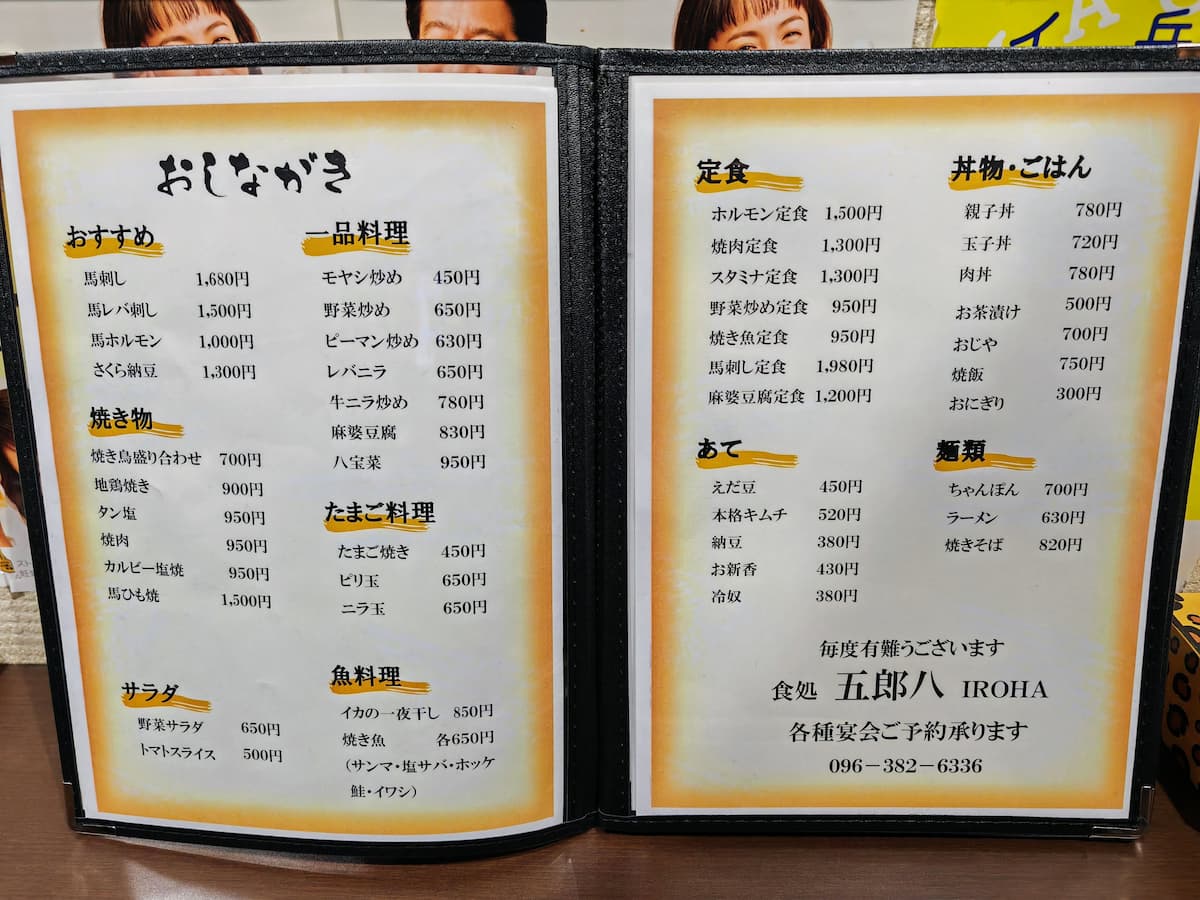 おしながき
おすすめ
馬刺し 1,680円
馬レバ刺し 1,500円
馬ホルモン 1,000円
さくら納豆 1,300円
焼き物
焼き鳥盛り合わせ 700円
地鶏焼き 900円
タン塩 950円
焼肉 950円
カルビー塩焼 950円
馬ひも焼 1,500円
サラダ
野菜サラダ 650円
トマトスライス 500円
一品料理
モヤシ炒め 450円
野菜炒め 650円
ピーマン炒め 630円
レバニラ 650円
牛ニラ炒め 780円
麻婆豆腐 830円
八宝菜 950円
たまご料理
たまご焼き 450円
ピリ玉 650円
ニラ玉 650円
魚料理
イカの一夜干し 850円
焼き魚 各650円
(サンマ・塩サバ・ホッケ
鮭・イワシ)
定食
ホルモン定食 1,500円
焼肉定食 1,300円
スタミナ定食 1,300円
野菜炒め定食 950円
焼き魚定食 950円
馬刺し定食 1,980円
麻婆豆腐定食 1,200円
あて
えだ豆 450円
本格キムチ 520円
納豆 380円
お新香 430円
冷奴 380円
丼物・ごはん
親子丼 780円
玉子丼 720円
肉丼 780円
お茶漬け 500円
おじや 700円
焼飯 750円
おにぎり 300円
麺類
ちゃんぽん 700円
ラーメン 630円
焼きそば 820円
毎度有難うございます
食処 五郎八 IROHA
各種宴会ご予約承ります
096-382-6336